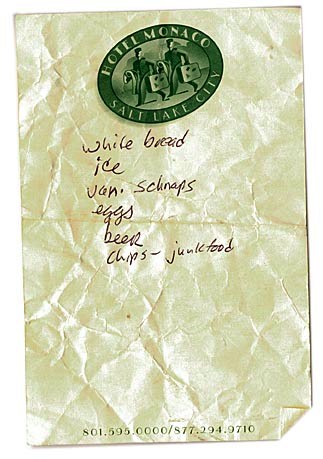 HOTEL MONACO
SALT LAKE CITY
white bread
ice
van. schnaps
eggs
beer
chips - junkfood
801.595.0000/877.294.9710